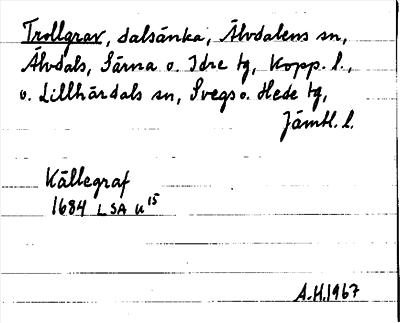 Trollgrav, dalsänka, Älvdalens sn,
Älvdals, Särna o. Idre tg, Kopp. l.,
o. Lillhärdals sn, Svegs o. Hede tg,
Jämtl. l.
Källegraf
1684 LSA U 15
A.H. 1967